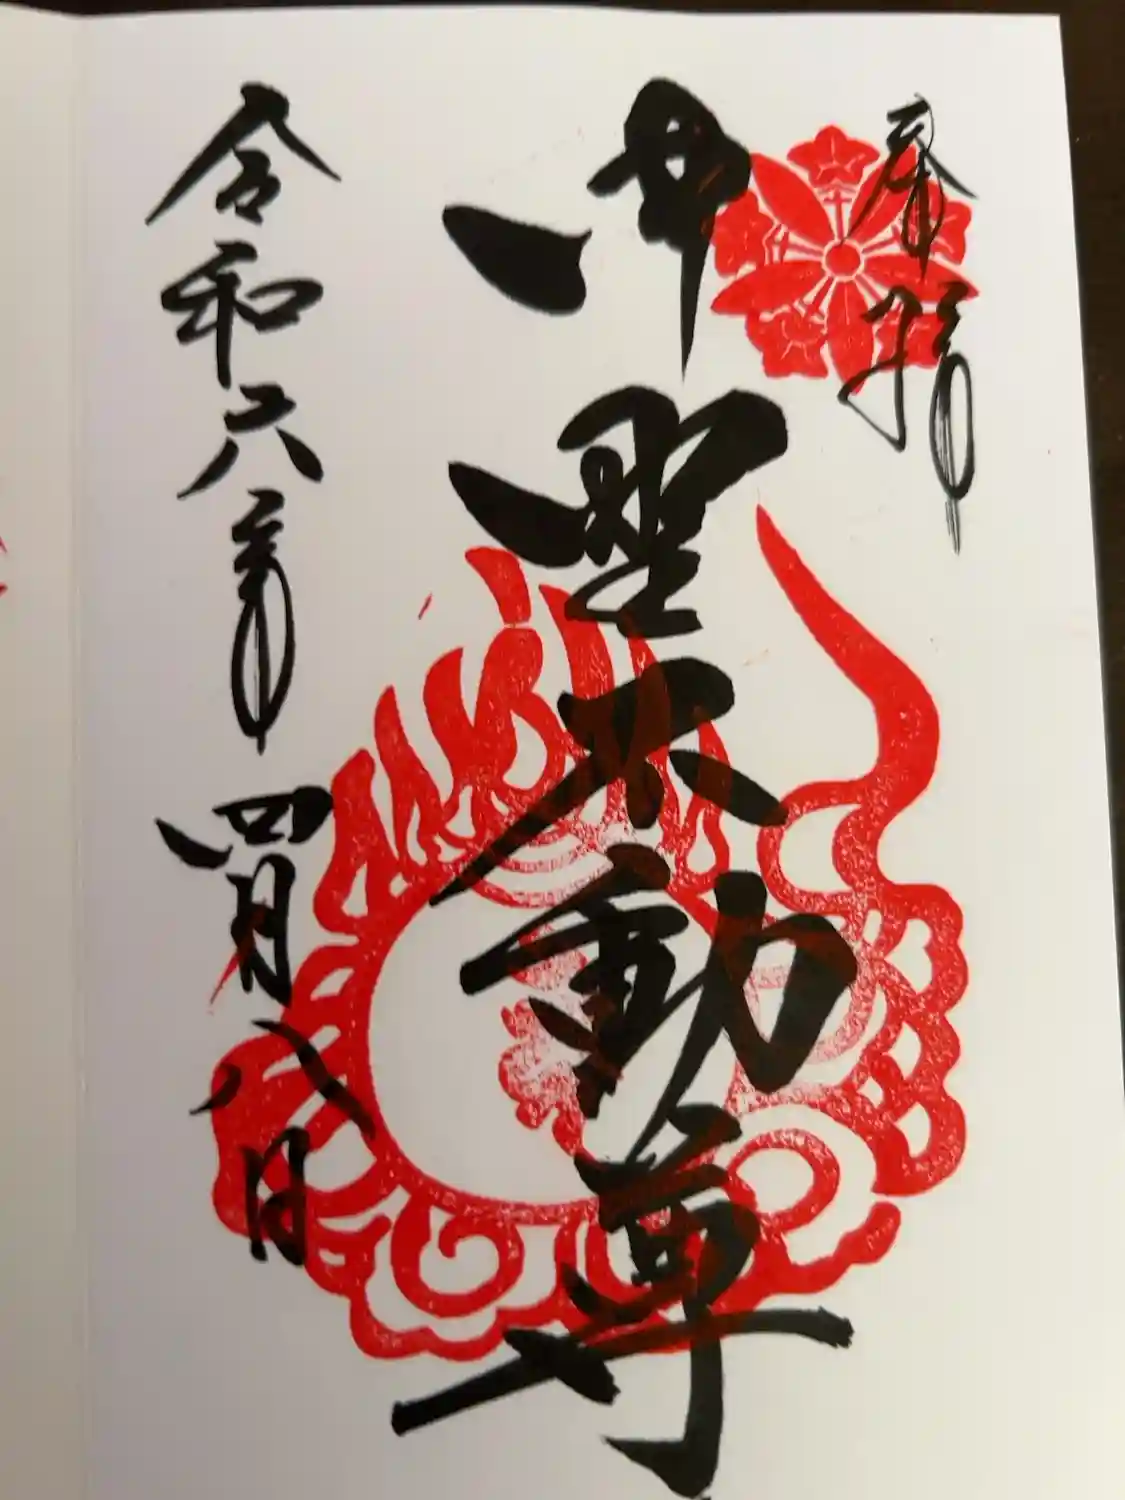 奉拝
聖不動尊
令和六年四月八日